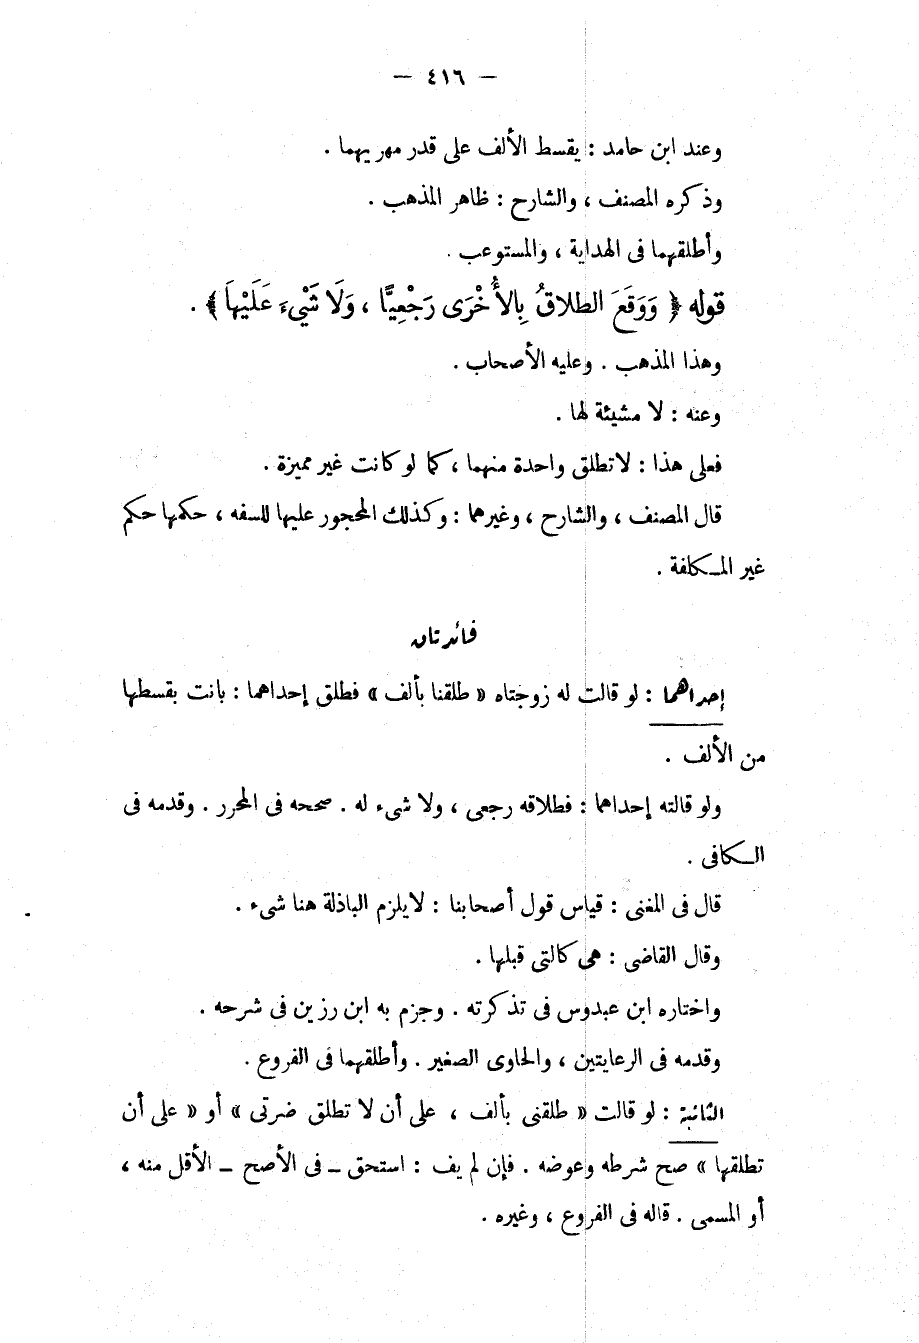 — ٤١٦ —
وعند ابن حامد : يقسط الألف على قدر مهريهما .
وذكره المصنف ، والشارح : ظاهر المذهب .
وأطلقهما فى الهداية ، والمستوعب .
قوله ﴿ وَوَقَعَ الطلاقُ بِالأُخْرَى رَجْعِيًّا ، وَلَا شَىْءَ عَلَيْهاَ ﴾ .
وهذا المذهب . وعليه الأصحاب .
وعنه : لا مشيئة لها .
فعلى هذا : لا تطلق واحدة منهما ، كما لو كانت غير مميزة .
قال المصنف ، والشارح ، وغيرهما : وكذلك المحجور عليها للسفه ، حكمها حكم
غير المكلفة .
فائدتان
إحداهما : لو قالت له زوجتاه « طلقنا بألف » فطلق إحداهما : بانت بقسطها
من الألف .
ولو قالته إحداهما : فطلاقه رجعى ، ولا شىء له . صححه فى المحرر . وقدمه فى
الكافى .
قال فى المغنى : قياس قول أصحابنا : لا يلزم الباذلة هنا شىء .
وقال القاضى : هى كالتى قبلها .
واختاره ابن عبدوس فى تذكرته . وجزم به ابن رزين فى شرحه .
وقدمه فى الرعايتين ، والحاوى الصغير . وأطلقهما فى الفروع .
الثانية : لو قالت « طلقنى بألف ، على أن لا تطلق ضرتى » أو « على أن
تطلقها » صح شرطه وعوضه . فإن لم يف : استحق – فى الأصح – الأقل منه ،
أو المسمى . قاله فى الفروع ، وغيره .